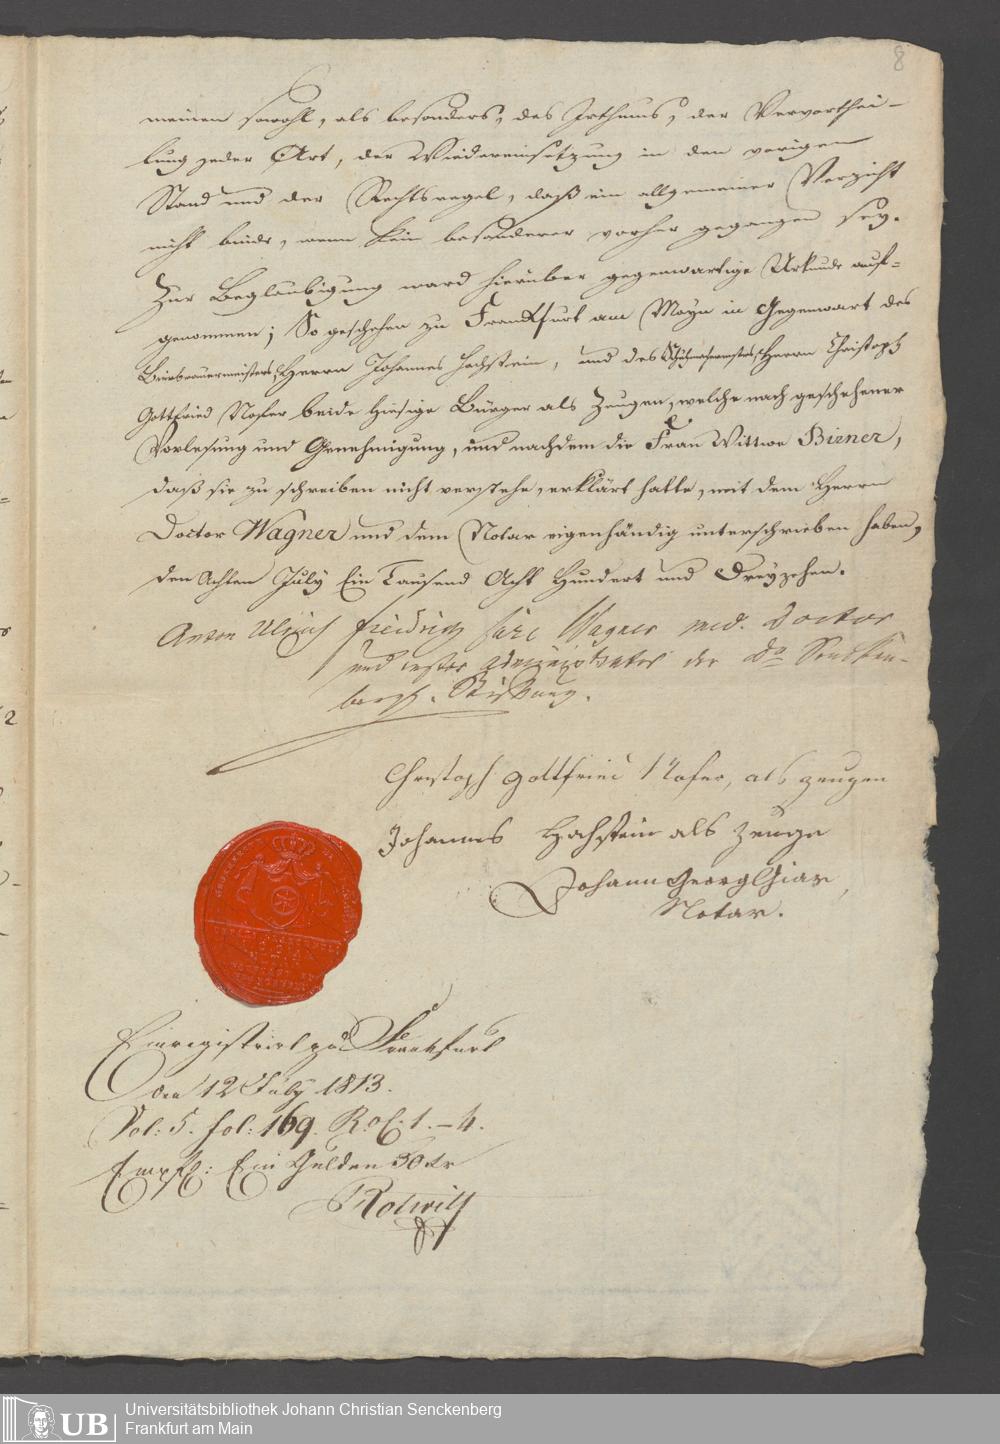 8
meinen sowohl, als besonders, des Irthums, der Vervorthei-
lung jeder Art, der Wiedereinsetzung in den vorigen
Stand und der Rechtsregel, daß ein allgemeiner Verzicht
nicht binde, wenn kein besonderer vorher gegangen sey.
Zur Beglaubigung ward hierüber gegenwartige Urkunde auf-
genommen; So geschehen zu Frankfurt am Mayn in Gegenwart des
Bierbrauermeisters, Herrn Johannes Hochstein, und des Herrn Christoph
Gottfried Noser beide hiesige Bürger als Zeugen, welche nach geschehener
Vorlesung und Genehmigung, und nachdem die Frau Wittwe Biener,
daß sie zu schreiben nicht verstehe, erklärt hatte, mit dem Herrn
Doctor Wagner und dem Notar eigenhändig unterschrieben haben,
den Achten July Ein Tausend Acht Hundert und Dreyzehen.
Anton Ulrich Friedrich Carl Wagner med. Doctor
und erster Administrator der Dr Senken-
bergh. Stiftung.
Christoph Gottfried Noser, als zeugen
Johannes Hochstein als Zeuge
Johann Georg Giar,
Notar.
Einregistrirt zu Frankfurt
den 12 July 1813.
Vol: 5. fol: 169. R.o C. 1.-4.
Empf: Ein Gulden 30 kr
Rotwitt
UB
Universitätsbibliothek Johann Christian Senckenberg
Frankfurt am Main